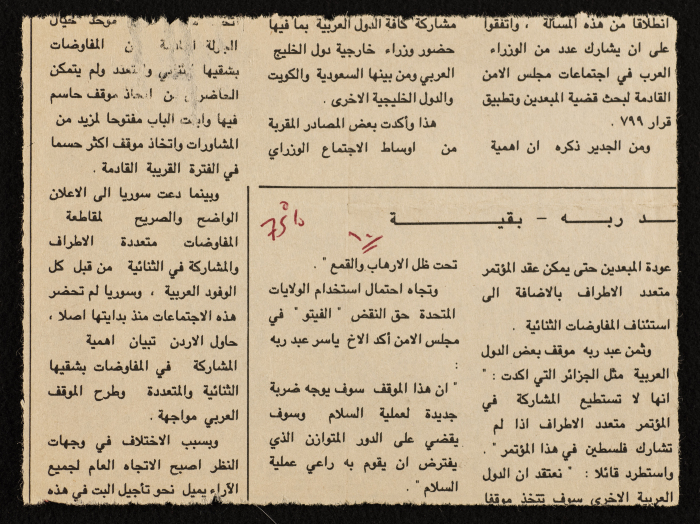 انطلاقا من هذه المسألة ، واتفقوا
على ان يشارك عدد من الوزراء
العرب في اجتماعات مجلس الامن
القادمة لبحث قضية المبعدين وتطبيق
قرار ٧٩٩ .
ومن الجدير ذكره ان اهمية
مشاركة كافة الدول العربية بما فيها
حضور وزراء خارجية دول الخليج
العربي ومن بينها السعودية والكويت
والدول الخليجية الاخرى .
هذا وأكدت بعض المصادر المقربة
من اوساط الاجتماع الوزاري
موحد حيال
الجولة من المفاوضات
بشقيها والمتعدد ولم يتمكن
الحاضرون من اتخاذ موقف حاسم
فيها وابقت الباب مفتوحا لمزيد من
المشاورات واتخاذ موقف اكثر حسما
في الفترة القريبة القادمة .
وبينما دعت سوريا الى الاعلان
الواضح والصريح لمقاطعة
المفاوضات متعددة الاطراف
والمشاركة في الثنائية من قبل كل
الوفود العربية ، وسوريا لم تحضر
هذه الاجتماعات منذ بدايتها اصلا ،
حاول الاردن تبيان اهمية
المشاركة في المفاوضات بشقيها
الثنائية والمتعددة وطرح الموقف
العربي مواجهة .
وبسبب الاختلاف في وجهات
النظر اصبح الاتجاه العام لجميع
الآراء يميل نحو تأجيل البت في هذه
ـد ربه - بقية
75%
١٠
عودة المبعدين حتى يمكن عقد المؤتمر
متعدد الاطراف بالاضافة الى
استئناف المفاوضات الثنائية .
وثمن عبد ربه موقف بعض الدول
العربية مثل الجزائر التي اكدت : "
انها لا تستطيع المشاركة في
المؤتمر متعدد الاطراف اذا لم
تشارك فلسطين في هذا المؤتمر " .
واستطرد قائلا : " نعتقد ان الدول
العربية الاخرى سوف تتخذ موقفا
تحت ظل الارهاب والقمع " .
وتجاه احتمال استخدام الولايات
المتحدة حق النقض " الفيتو " في
مجلس الامن أكد الاخ ياسر عبد ربه
:
" ان هذا الموقف سوف يوجه ضربة
جديدة لعملية السلام وسوف
يقضي على الدور المتوازن الذي
يفترض ان يقوم به راعي عملية
السلام " .